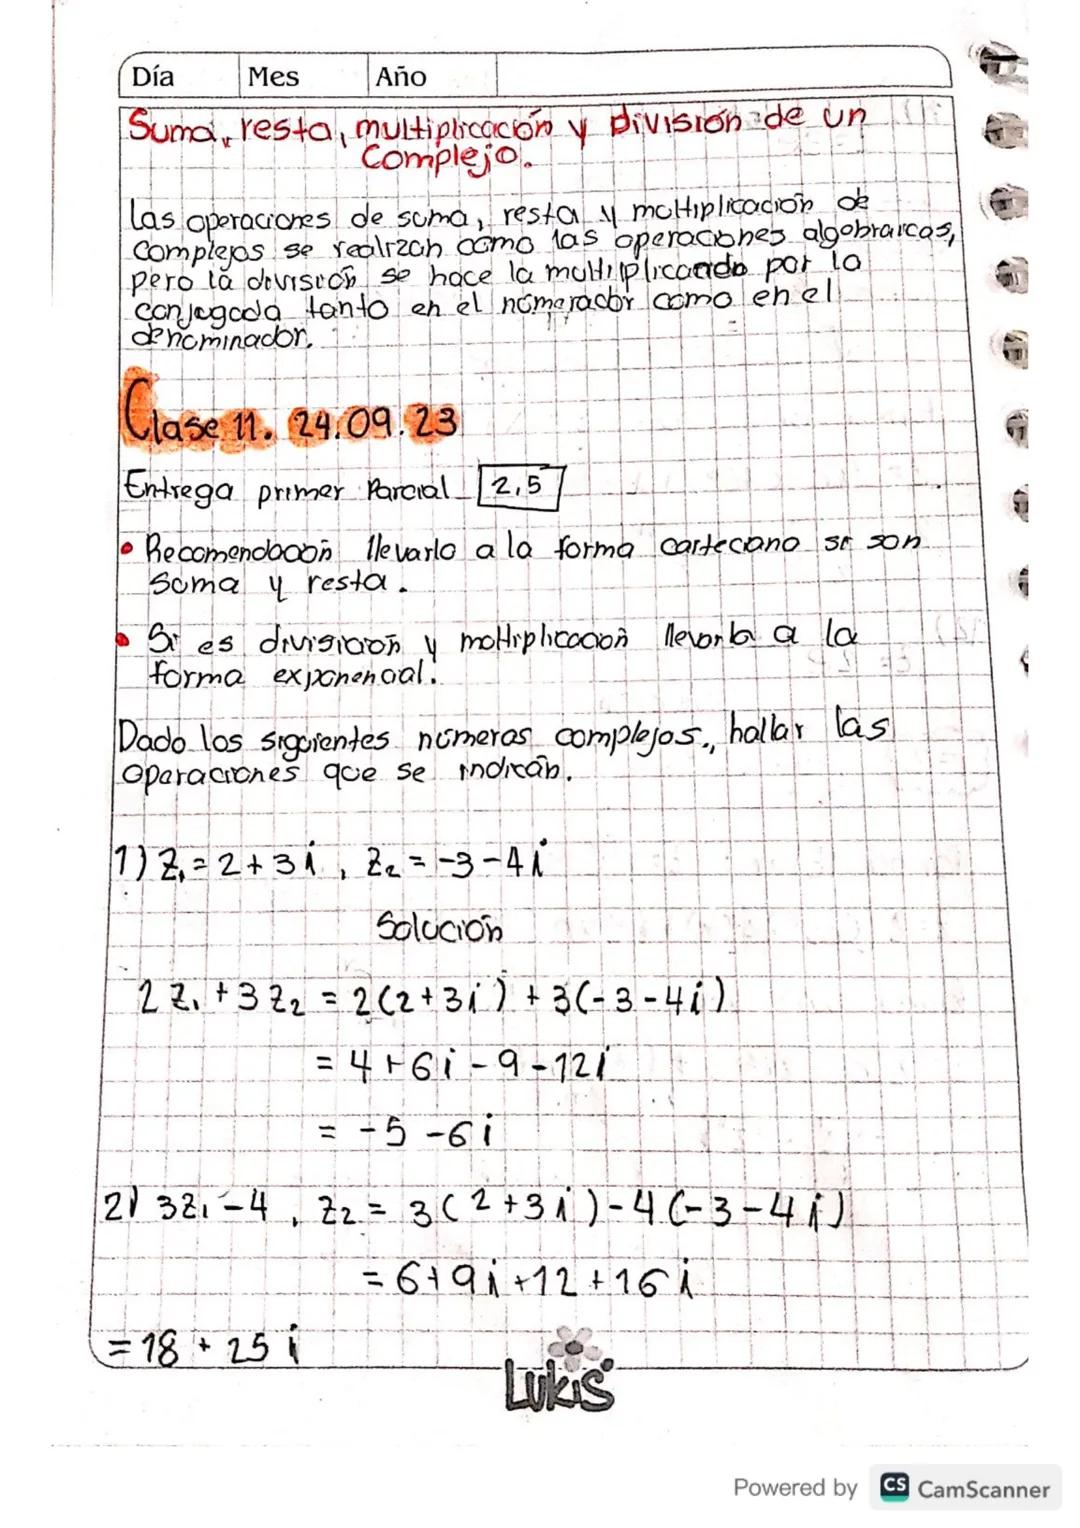 Día Mes Año
Suma, resta, multiplicación y división de un
Complejo.
las operaciones de suma, resta y moltiplicación de
complejos se realizan como las operaciones algobraicas,
pero la división se hace la multiplicando por la
conjugada tanto en el númerador como en el
denominador.
Clase 11. 24.09.23
Entrega primer Parcial 2,5
• Recomendación llevarlo a la forma carteciano si son
Soma y resta.
• Si es divisición y moltiplicación llevarla a la
forma exponencial.
Dado los siguientes números complejos, hallar las
operaciones que se indican.
1) Z₁ = 2 + 3i, Z₂ = -3 - 4i
Solución
2 Z₁ + 3 Z₂ = 2(2+3i) + 3(-3-4i)
= 4 + 6i - 9 - 12i
= -5 - 6i
2) 3Z₁ - 4, Z₂ = 3(2+3i) - 4(-3-4i)
= 6 + 9i + 12 + 16i
= 18 + 25i
Lukis
Powered by CS CamScanner